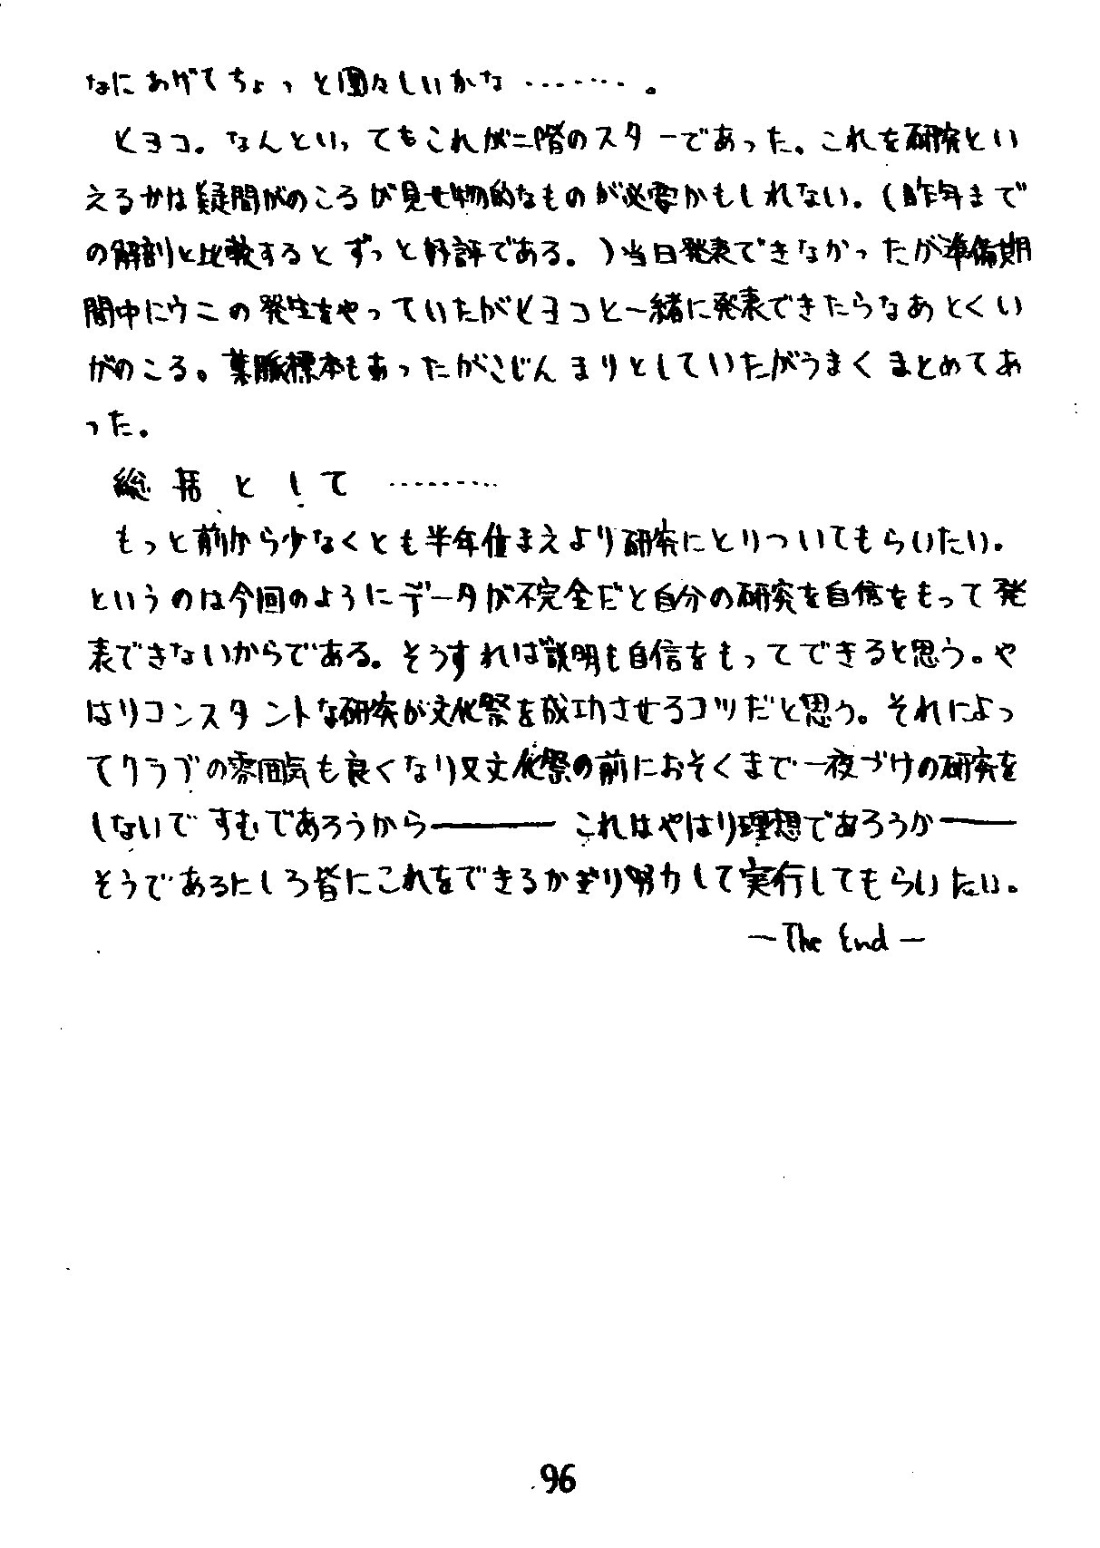 なにあげてちょっと図々しいかな………。
ヒヨコ。なんといってもこれが二階のスターであった。これを研究とい
えるかは疑問がのころが見せ物的なものが必要かもしれない。(昨年まで
の解剖と比較するとずっと好評である。)当日発表できなかったが準備期
間中にウニの発生をやっていたがヒヨコと一緒に発表できたらなあとくい
がのこる。葉脈標本もあったがこじんまりとしていたがうまくまとめてあ
った。
総括として………
もっと前から少なくとも半年位まえより研究にとりついてもらいたい。
というのは今回のようにデータが不完全だと自分の研究を自信をもって発
表できないからである。そうすれば説明も自信をもってできると思う。や
はりコンスタントな研究が文化祭を成功させるコツだと思う。それによっ
てクラブの雰囲気も良くなり又文化祭の前におそくまで一夜づけの研究を
しないですむであろうから――― これはやはり理想であろうか――
そうであるにしろ皆にこれをできるかぎり努力して実行してもらいたい。
―The End―
96